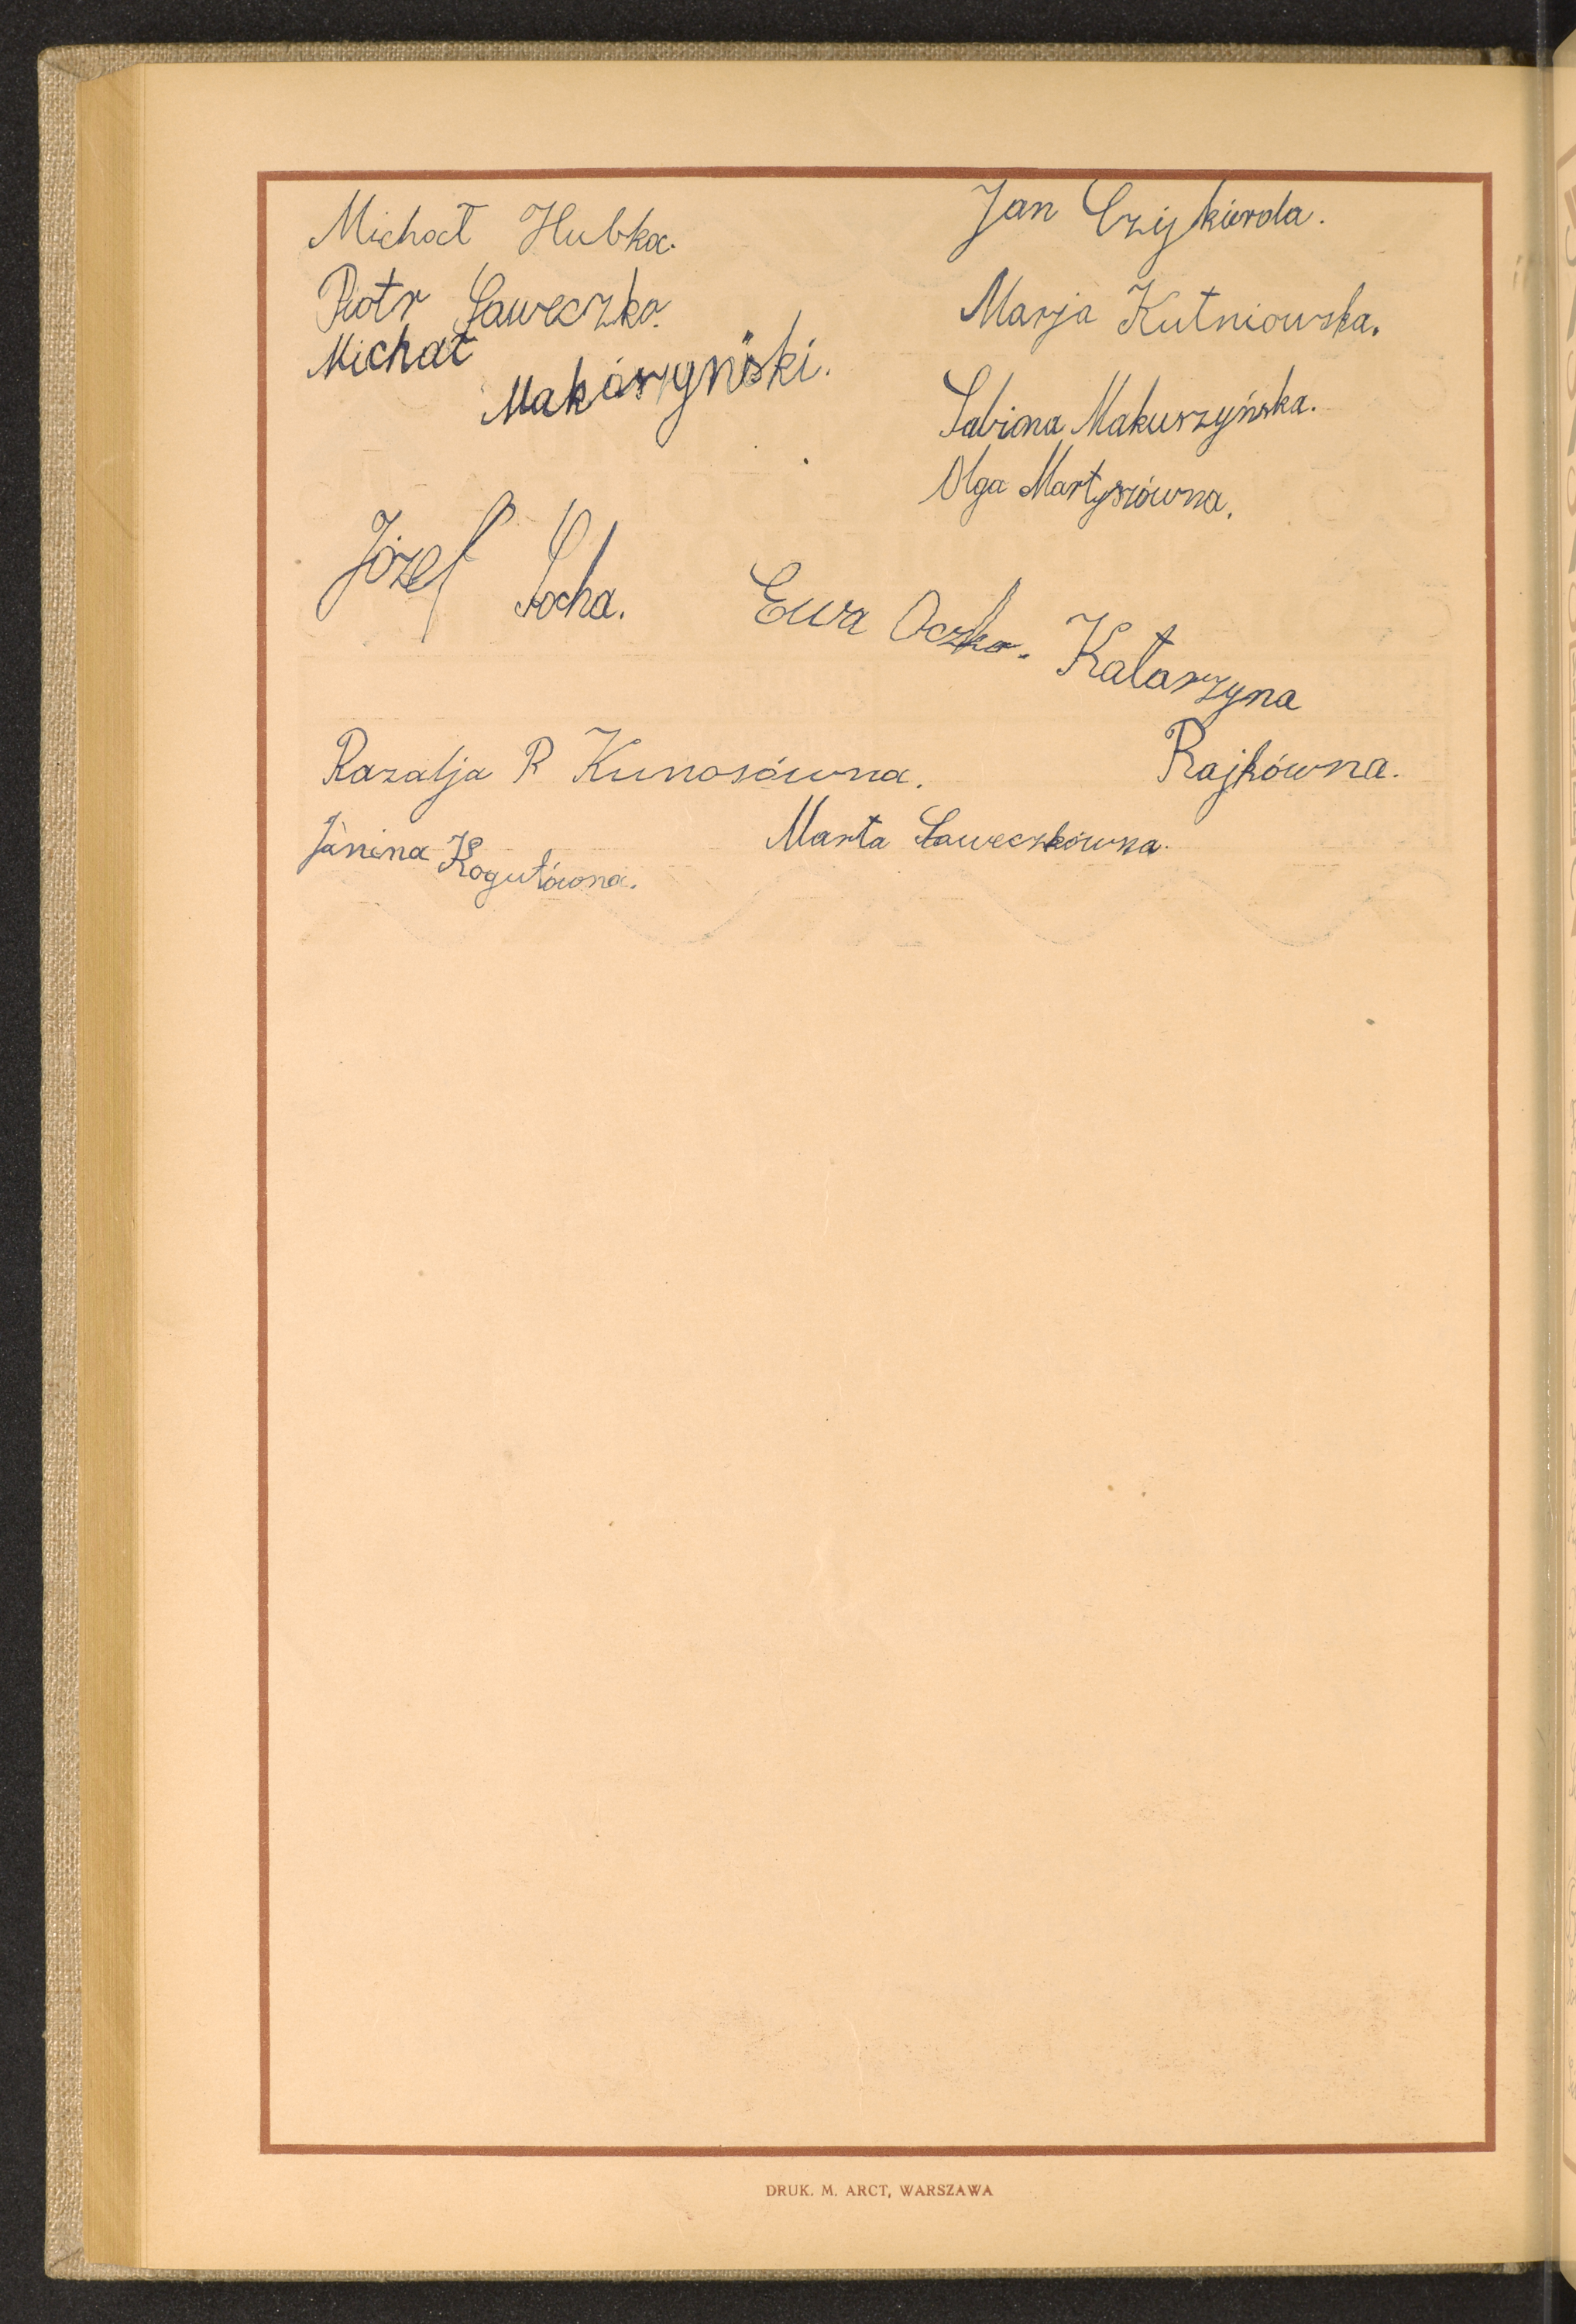 Michał Hubka.
Piotr Saweczko.
Michał
Makórzyński.
Józef Socha.
Jan Czyżkierda.
Marja Kutniowska.
Sabina Makurzyńska.
Olga Martyszówna.
Ewa Oczko.
Katarzyna
Rajkówna.
Razalja R Kunosówna.
Janina Kogutówna.
Marta Saweczkówna.
DRUK. M. ARCT, WARSZAWA